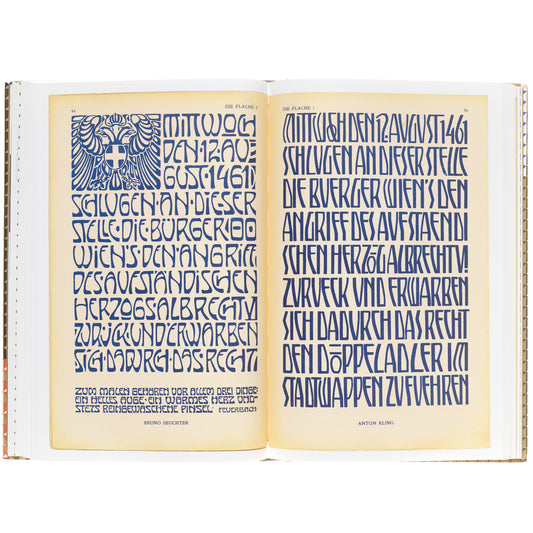 DIE FLÄCHE I
MITTWOCH
DEN·12·AU=
GUST·1461
SCHLUGEN·AN·DIESER
STELLE·DIE·BÜRGER
WIEN'S·DEN·ANGRIFF
DES·AUFSTÄNDISCHEN
HERZOGS·ALBRECHT·VI
ZURÜCK·UND·ERWARBEN
SICH·DADURCH·DAS·RECHT
ZUM MALEN GEHÖREN VOR ALLEM DREI DINGE:
EIN HELLES AUGE·EIN WARMES HERZ UND
STETS REINGEWASCHENE PINSEL· FEUERBACH
BRUNO SEUCHTER
DIE FLÄCHE I
MITTWOCH DEN 12. AUGUST 1461
SCHLUGEN AN DIESER STELLE
DIE BUERGER WIEN'S DEN
ANGRIFF DES AUFSTAENDI
SCHEN HERZOG ALBRECHT VI
ZURUECK UND ERWARBEN
SICH DADURCH DAS RECHT
DEN DOPPELADLER IM
STADTWAPPEN ZU FUEHREN
ANTON KLING